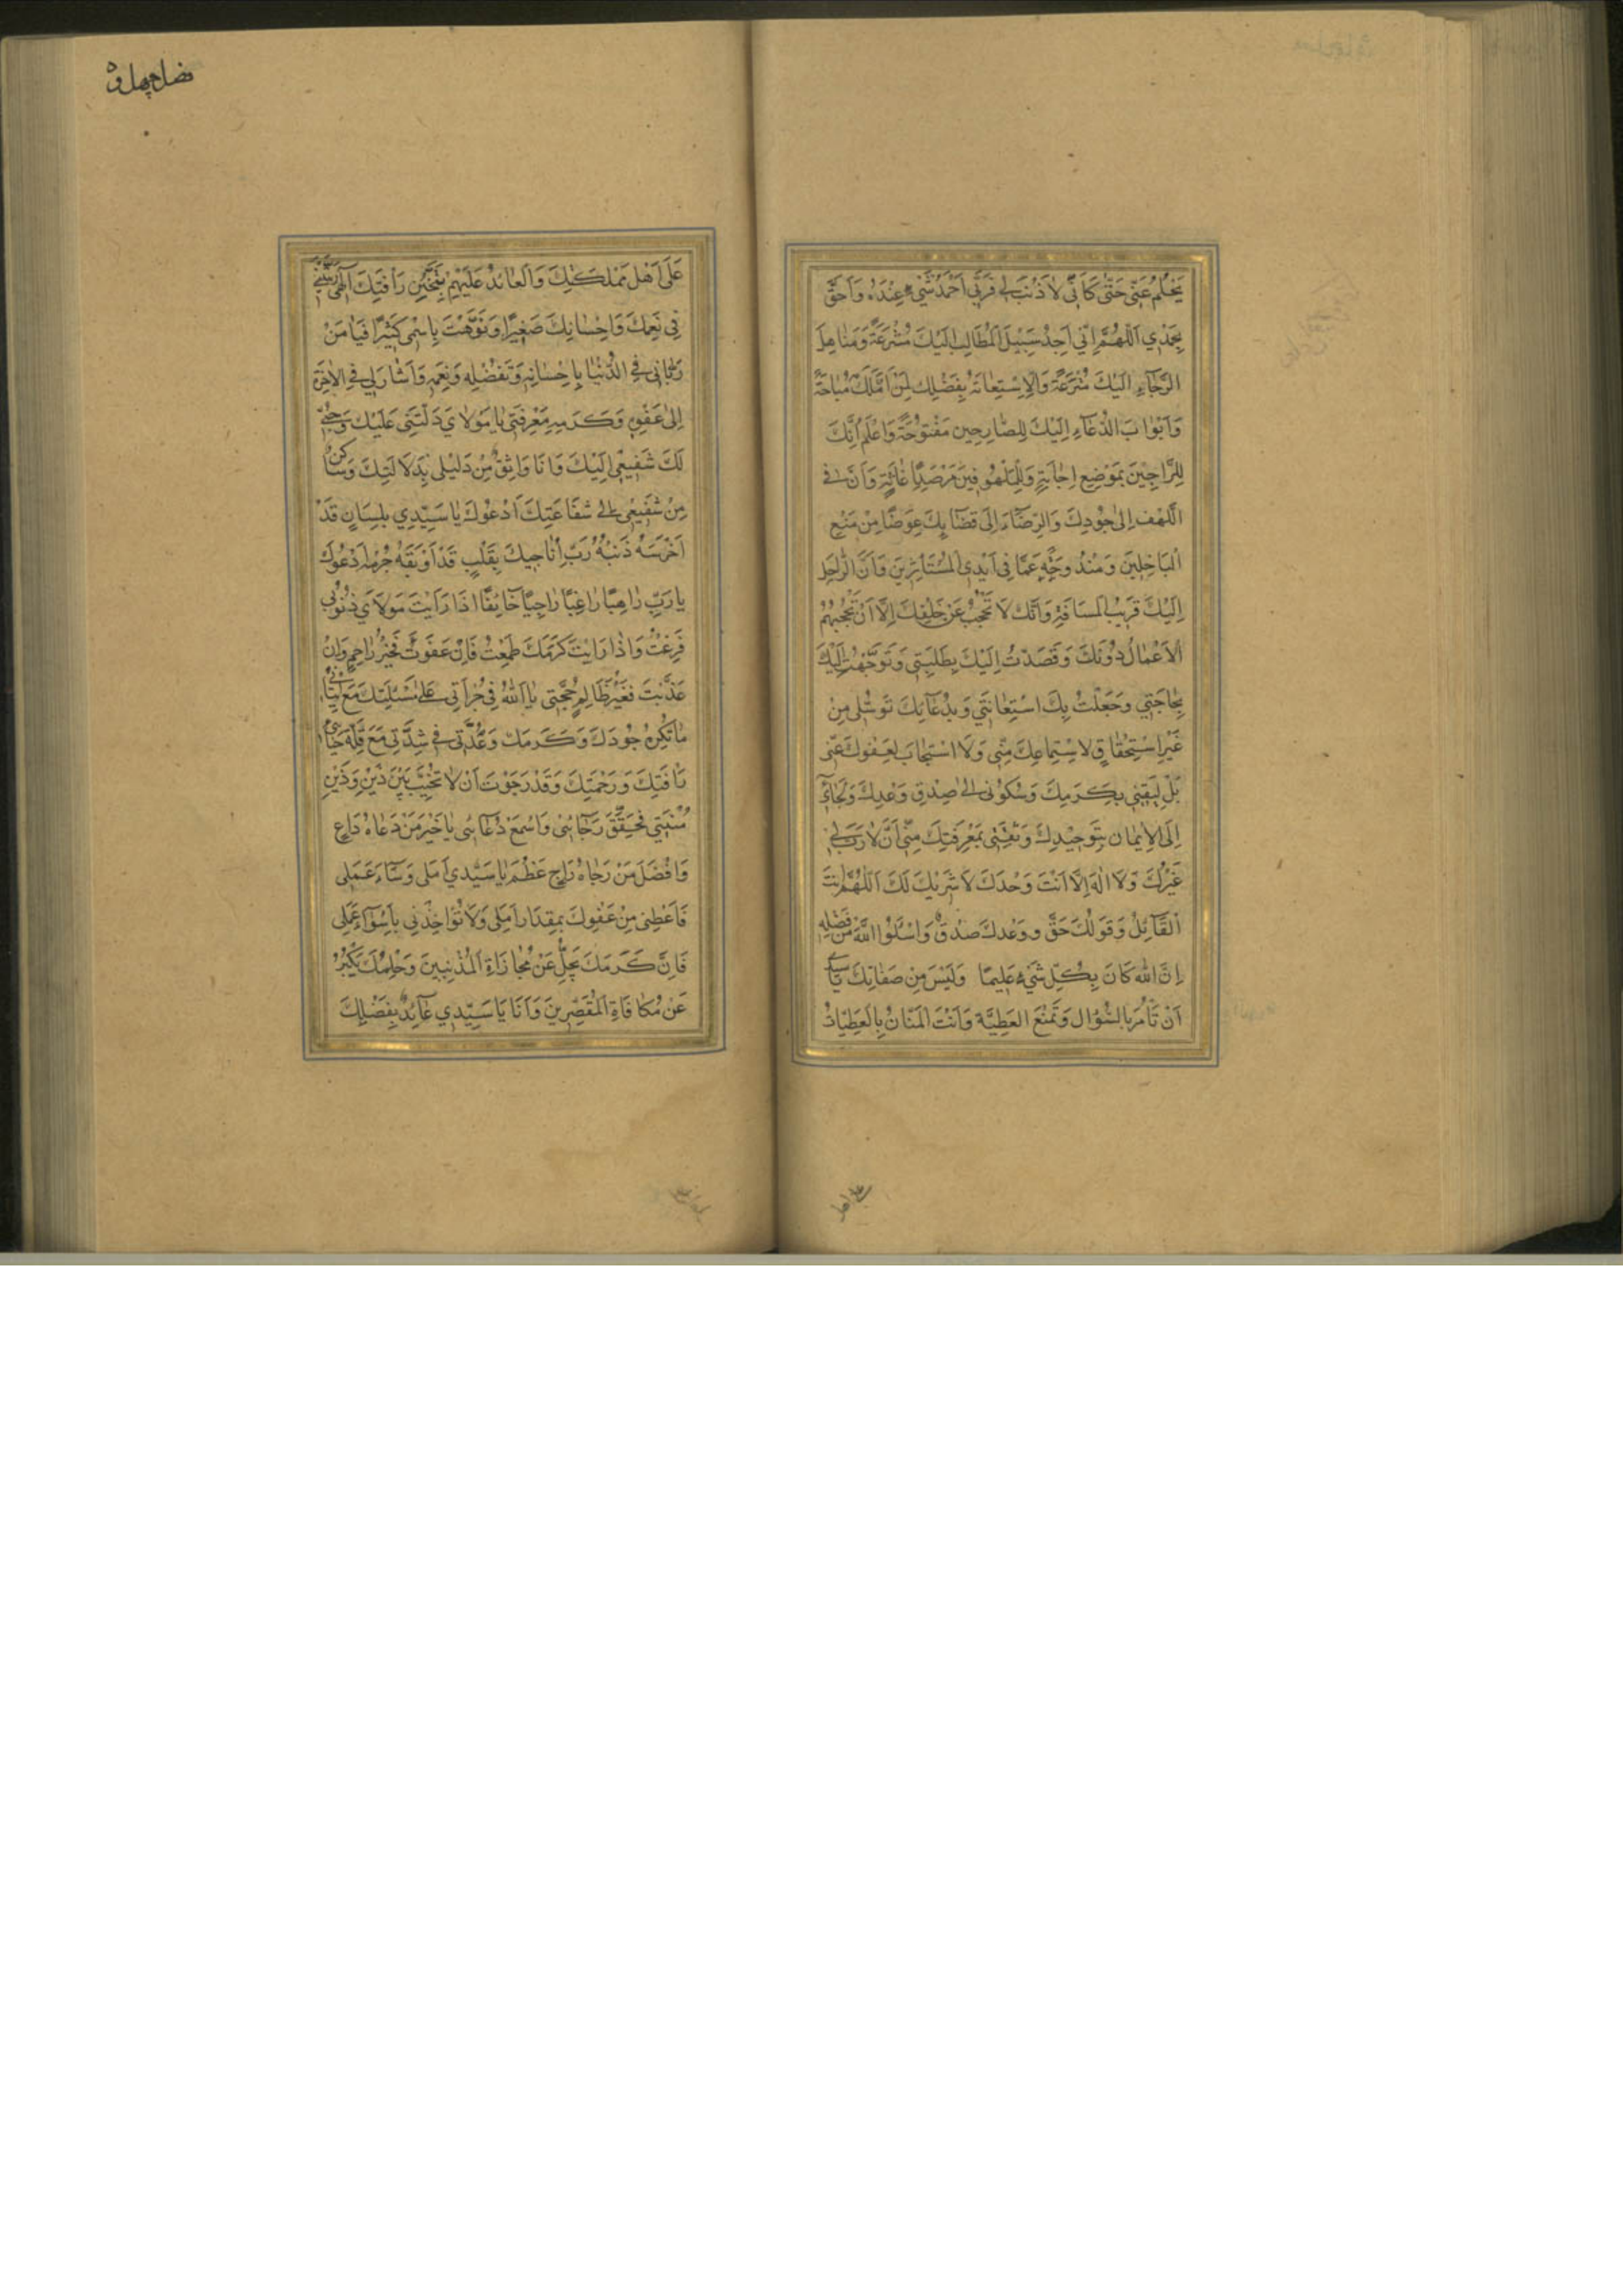 يَحْلُمُ عَنّى حَتّى كَاَنّى لاَ ذَنْبَ لى فَرَبّى اَحْمَدُ شَىْءٍ عِنْدى وَاَحَقُّ
بِحَمْدي اَللّهُمَّ اِنّي اَجِدُ سَبِيْلَ الْمَطَالِبِ اِلَيْكَ مُشْرَعَةً وَمَنَاهِلَ
الرَّجَآءِ اِلَيْكَ مُتْرَعَةً وَالْاِسْتِعَانَةَ بِفَضْلِكَ لِمَنْ اَمَّلَكَ مُبَاحَةً
وَاَبْوَابَ الدُّعَآءِ اِلَيْكَ لِلصَّارِخِينَ مَفْتُوحَةً وَاَعْلَمُ اَنَّكَ
لِلرَّاجِيْنَ بِمَوْضِعِ اِجَابَةٍ وَلِلْمَلْهُوفِينَ بِمَرْصَدِ اِغَاثَةٍ وَاَنَّ فى
اللَّهْفِ اِلى جُودِكَ وَالرِّضَاءِ اِلَى قَضَآئِكَ عِوَضًا مِنْ مَنْعِ
الْبَاخِلِينَ وَمَنْدُوحَةً عَمَّا فى اَيْدِى الْمُسْتَاْثِرِينَ وَاَنَّ الرَّاحِلَ
اِلَيْكَ قَرِيْبُ الْمَسَافَةِ وَاَنَّكَ لاَ تَحْجُبُ عَنْ خَلْقِكَ اِلاَّ اَنْ تَحْجُبَهُمُ
الْاَعْمَالُ دُونَكَ وَقَصَدْتُ اِلَيْكَ بِطَلِبَتِي وَتَوَجَّهْتُ اِلَيْكَ
بِحَاجَتِي وَجَعَلْتُ بِكَ اسْتِغَاثَتي وَبِدُعَآئِكَ تَوَسُّلى مِنْ
غَيْرِ اسْتِحْقَاقٍ لاِسْتِمَاعِكَ مِنّى وَلاَ اسْتِيجَابٍ لِعَفْوِكَ عَنّى
بَلْ لِثِقَتِي بِكَرَمِكَ وَسُكُونى اِلى صِدْقِ وَعْدِكَ وَلَجَآئى
اِلَى الاِيمَانِ بِتَوْحِيْدِكَ وَثِقَتِى بِمَعْرِفَتِكَ مِنّى اَنْ لاَ رَبَّ لى
غَيْرُكَ وَلاَ اِلهَ اِلاَّ اَنْتَ وَحْدَكَ لاَ شَرِيْكَ لَكَ اَللّهُمَّ اَنْتَ
الْقَآئِلُ وَقَوْلُكَ حَقٌّ وَوَعْدُكَ صِدْقٌ وَاسْئَلُوا اللهَ مِنْ فَضْلِهِ
اِنَّ اللهَ كَانَ بِكُلِّ شَيْءٍ عَلِيمًا وَلَيْسَ مِنْ صِفَاتِكَ يَا سَيِّدي
اَنْ تَاْمُرَ بِالسُّؤَالِ وَتَمْنَعَ الْعَطِيَّةَ وَاَنْتَ الْمَنَّانُ بِالْعَطِيَّاتِ
عَلَى اَهْلِ مَمْلَكَتِكَ وَالْعَائِدُ عَلَيْهِمْ بِتَحَنُّنِ رَأفَتِكَ اِلهى رَبَّيْتَنى
فِي نِعَمِكَ وَاِحْسَانِكَ صَغِيْرًا وَنَوَّهْتَ بِاسْمى كَبيْرًا فَيَا مَنْ
رَبَّانى فِي الدُّنْيَا بِاِحْسَانِهِ وَتَفَضُّلِهِ وَنِعَمِهِ وَاَشَارَ لى فِي الْاخِرَةِ
اِلى عَفْوِهِ وَكَرَمِهِ مَعْرِفَتى يَا مَوْلاَيَ دَلَّتْنِى عَلَيْكَ وَحُبّى
لَكَ شَفِيْعى اِلَيْكَ وَاَنَا وَاثِقٌ مِنْ دَلِيلى بِدَلاَلَتِكَ وَسَاكِنٌ
مِنْ شَفِيْعى اِلى شَفَاعَتِكَ اَدْعُوكَ يَا سَيِّدِي بِلِسَانٍ قَدْ
اَخْرَسَهُ ذَنْبُهُ رَبِّ اُنَاجِيكَ بِقَلْبٍ قَدْ اَوْبَقَهُ جُرْمُهُ اَدْعُوكَ
يَا رَبِّ رَاهِبًا رَاغِبًا رَاجِيًا خَائِفًا اِذَا رَاَيْتُ مَوْلاَيَ ذُنُوبى
فَزِعْتُ وَاِذَا رَاَيْتُ كَرَمَكَ طَمِعْتُ فَاِنْ عَفَوْتَ فَخَيْرُ رَاحِمٍ وَاِنْ
عَذَّبْتَ فَغَيْرُ ظَالِمٍ حُجَّتِى يَا اَللهُ فِي جُرْاَتى عَلى مَسْئَلَتِكَ مَعَ اِتْيَانى
مَا تَكْرَهُ جُودُكَ وَكَرَمُكَ وَعُدَّتى فى شِدَّتى مَعَ قِلَّةِ حَيَائى
رَاْفَتُكَ وَرَحْمَتُكَ وَقَدْ رَجَوْتُ اَنْ لاَ تُخَيِّبَ بَيْنَ ذَيْنِ وَذَيْنِ
مُنْيَتِي فَحَقِّقْ رَجَائى وَاسْمَعْ دُعَائى يَا خَيْرَ مَنْ دَعَاهُ دَاعٍ
وَاَفْضَلَ مَنْ رَجَاهُ رَاجٍ عَظُمَ يَا سَيِّدي اَمَلى وَسَآءَ عَمَلى
فَاَعْطِنى مِنْ عَفْوِكَ بِمِقْدَارِ اَمَلى وَلاَ تُؤَاخِذْنِي بِاَسْوَءِ عَمَلى
فَاِنَّ كَرَمَكَ يَجِلُّ عَنْ مُجَازَاةِ الْمُذْنِبِينَ وَحِلْمُكَ يَكْبُرُ
عَنْ مُكَافَاةِ الْمُقَصِّرِينَ وَاَنَا يَا سَيِّدِي عَآئِذٌ بِفَضْلِكَ